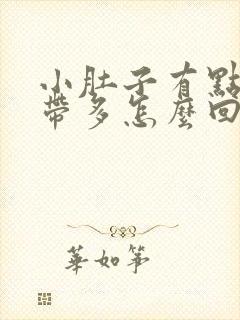 小肚子有點
帶多怎麼回
華如箏